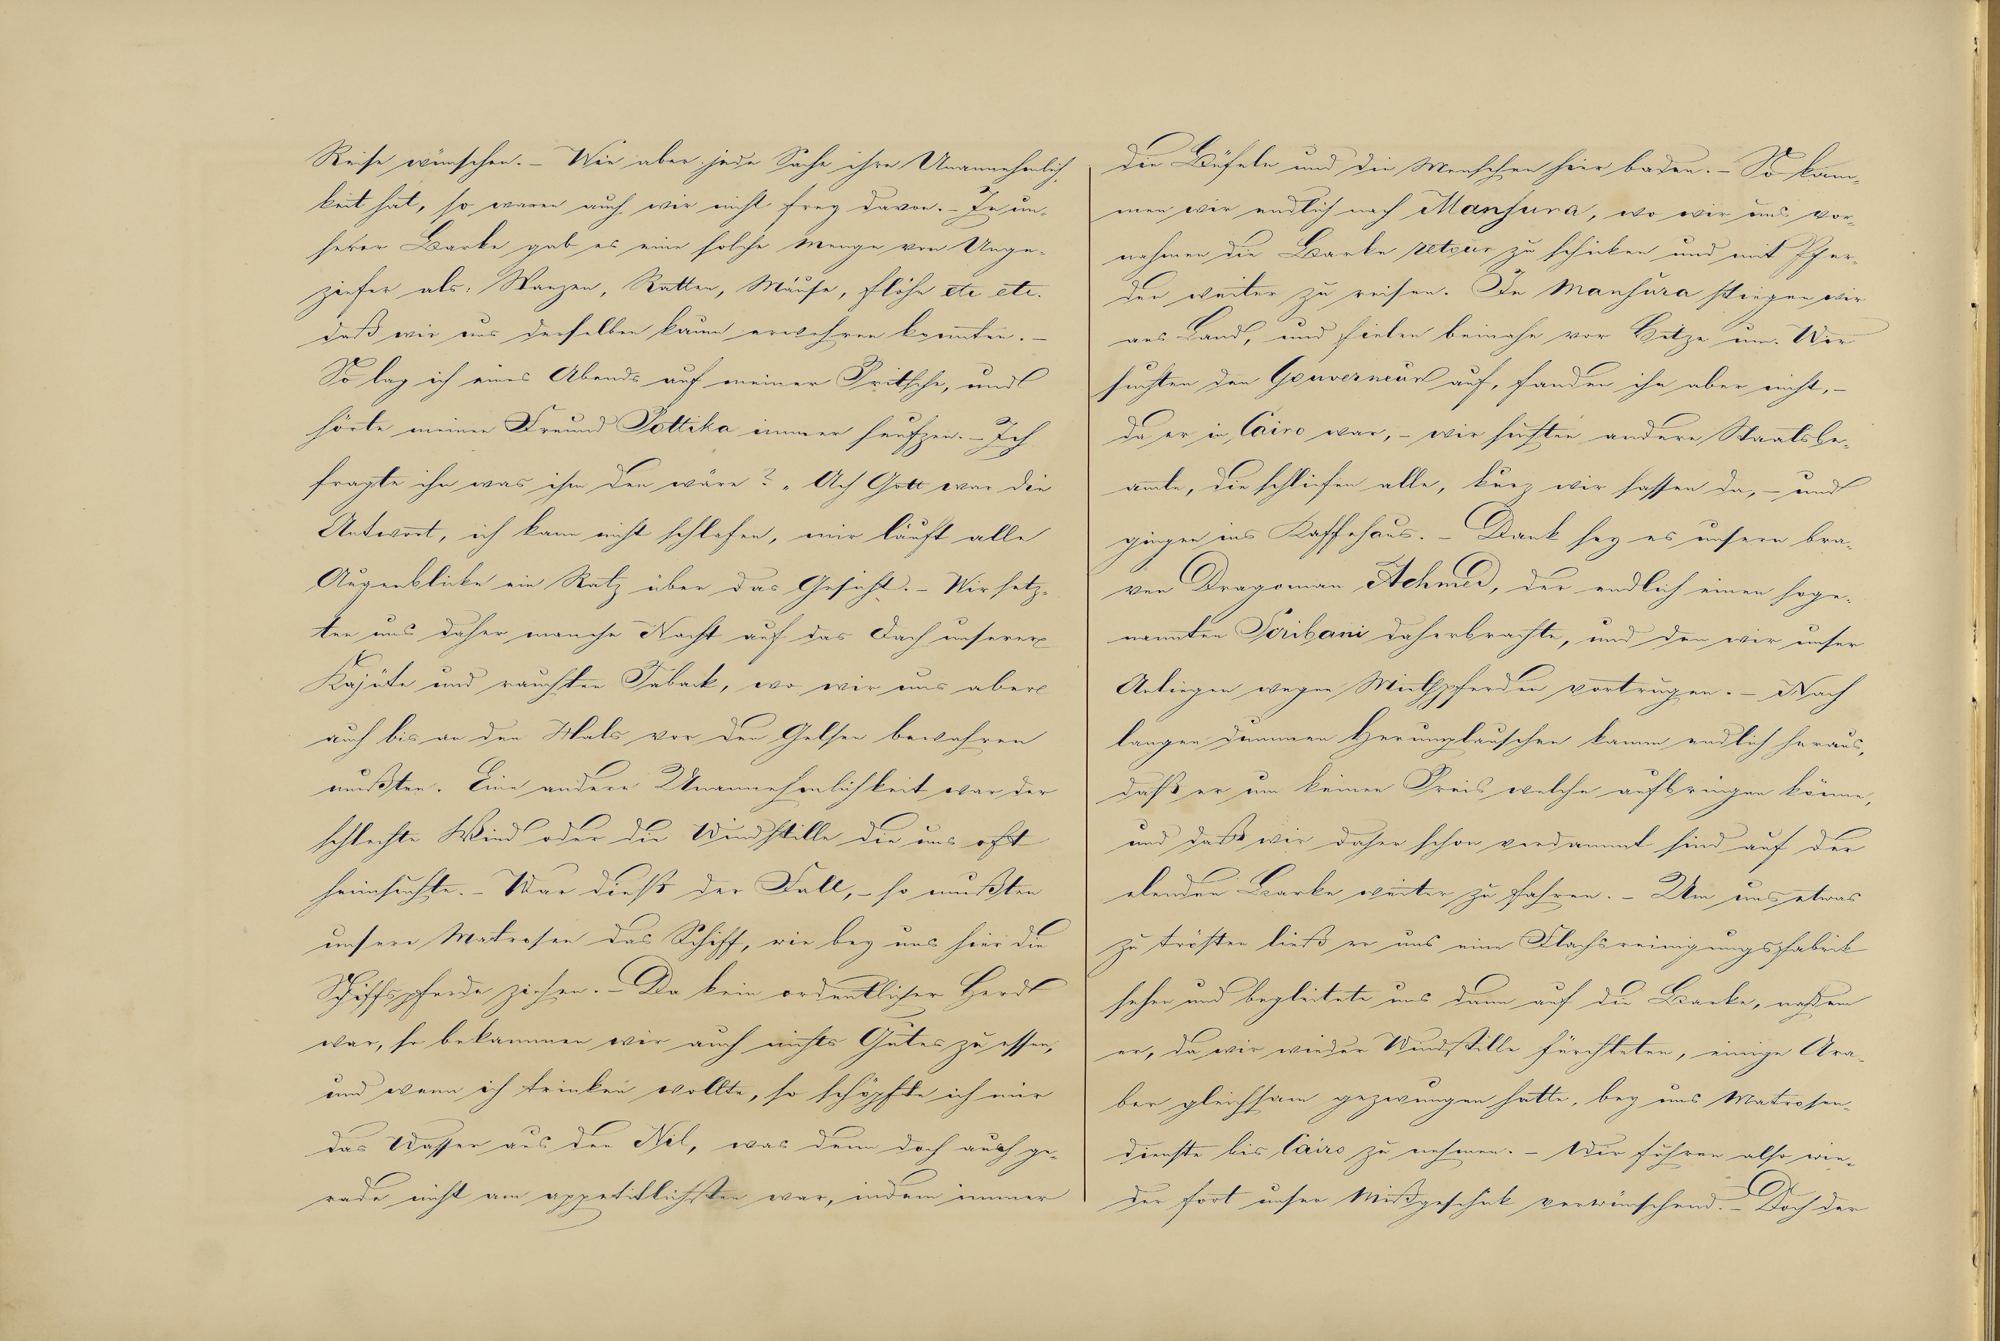 Reise wünschen. – Wie aber jede Sache ihre Unannehmlich-
keit hat, so waren auch wir nicht frey davon. – In un-
serer Barke gab es eine solche Menge von Unge-
ziefer als: Wanzen, Ratten, Mäuse, Flöhe etc etc.
daß wir uns derselben kaum erwehren konnten. –
So lag ich eines Abends auf meiner Pritsche, und
hörte meinen Freund Pottika immer seufzen. – Ich
fragte ihn was ihm den wäre? „Ach Gott war die
Antwort, ich kann nicht schlafen, mir läuft alle
Augenblicke ein Ratz über das Gesicht. – Wir setz-
ten uns daher manche Nacht auf das Dach unserer
Kajüte und rauchten Taback, wo wir uns aber
auch bis an den Hals vor den Gelsen bewahren
mußten. Eine andere Unannehmlichkeit war der
schlechte Wind oder die Windstille die uns oft
heimsuchte. – War dieß der Fall, – so mußten
unsere Matrosen das Schiff, wie bey uns hier die
Schiffspferde ziehen. – Da kein ordentlicher Herd
war, so bekammen wir auch nichts Gutes zu essen,
und wenn ich trinken wollte, so schöpfte ich mir
das Wasser aus den Nil, was denn doch auch ge-
rade nicht am appetitlichsten war, indem immer
die Büfeln und die Menschen hier baden. – So kam-
men wir endlich nach Mansura, wo wir uns vor-
nahmen die Barke retour zu schicken und mit Pfer-
den weiter zu reisen. In Mansura stiegen wir
ans Land, und fielen beinahe vor Hitze um. Wir
suchten den Gouverneur auf, fanden ihn aber nicht, –
da er in Cairo war, – wir suchten andere Staatsbe-
amte, die schliefen alle, kurz wir sassen da, – und
gingen ins Kaffehaus. – Dank sey es unsern bra-
ven Dragoman Achmed, der endlich einen soge-
nannten Scribani daherbrachte, und den wir unser
Anliegen wegen Miethpferden vortrugen. – Nach
langen dummen Herumplauschen kamm endlich heraus,
daß er um keinen Preis welche aufbringen könne,
und daß wir daher schon verdammt sind auf der
elenden Barke weiter zu fahren. – Um uns etwas
zu trösten ließ er uns eine Flachsreinigungsfabrik
sehen und begleitete uns dann auf die Barke, nachdem
er, da wir wieder Windstille fürchteten, einige Ara-
ber gleichsam gezwungen hatte, bey uns Matrosen-
dienste bis Cairo zu nehmen. – Wir fuhren also wie-
der fort unser Mißgeschik verwünschend. – Doch der